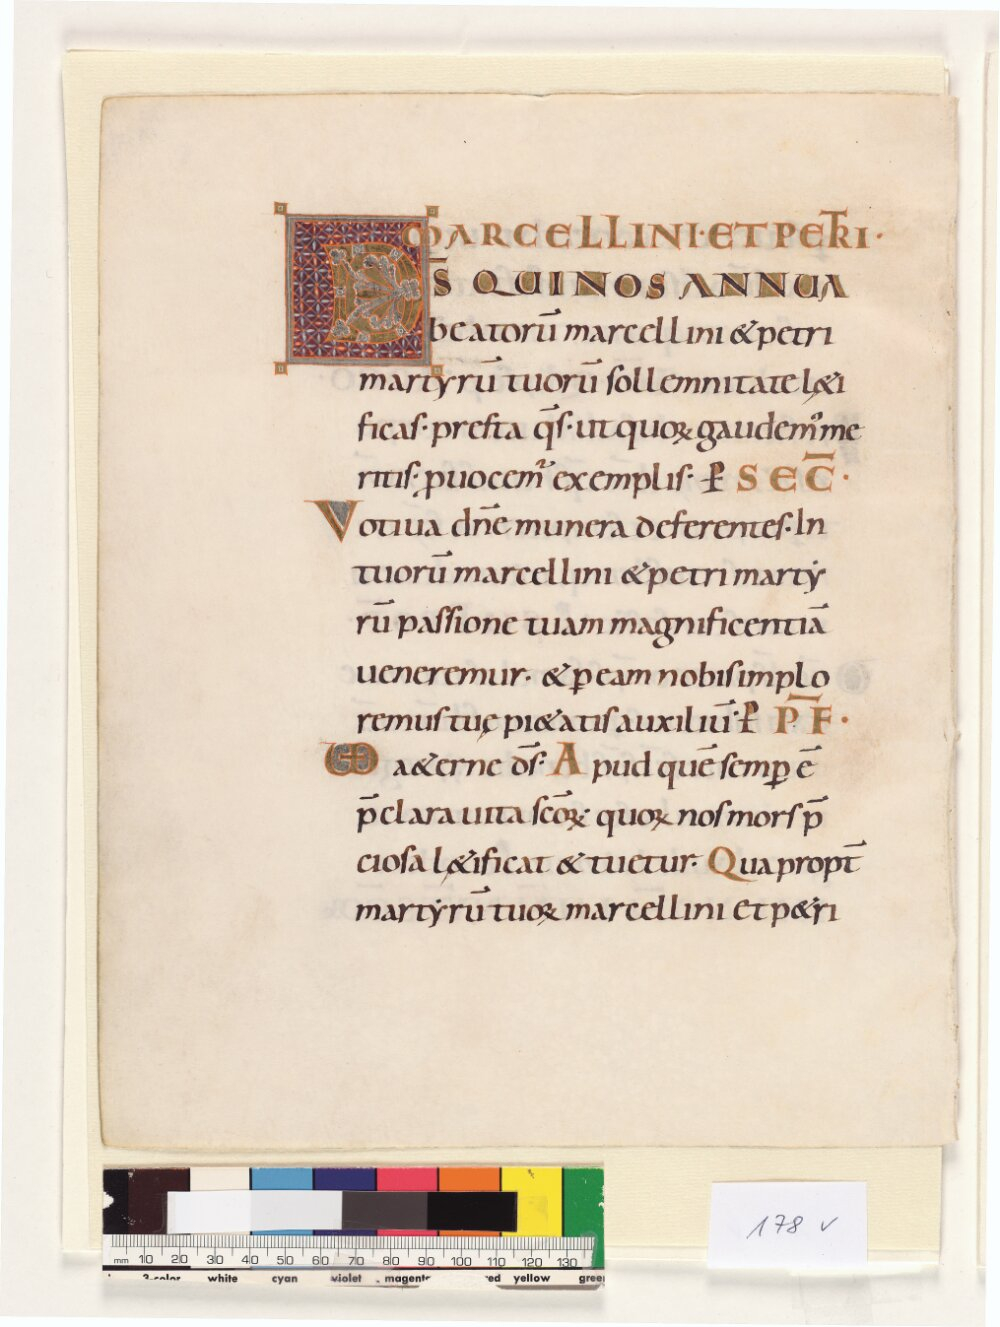 MARCELLINI·ET PETRI·
DS̄ QUI NOS ANNUA
beatorū marcellini & petri
martyrū tuorū sollemnitate l&i
ficas· presta q̄s· ut quoꝝ gaudem᾽ me
ritis· ꝓuocem᾽ exemplis· ꝑ SEC̄·
Votiua dn̄e munera deferentes· In
tuorū marcellini & petri marty
rū passione tuam magnificentiā
ueneremur· & ꝑ eam nobis implo
remus tuę pi&atis auxiliū· ꝑ P̄F·
VD a&erne ds̄· Apud quē semꝑ ē
p̄clara uita sc̄oꝝ· quoꝝ nos mors p̄
ciosa l&ificat & tuetur· Qua propt̄
martyrū tuoꝝ marcellini et p&ri
178 v
mm 10 20 30 40 50 60 70 80 90 100 110 120 130
3-color white cyan violet magenta red yellow green